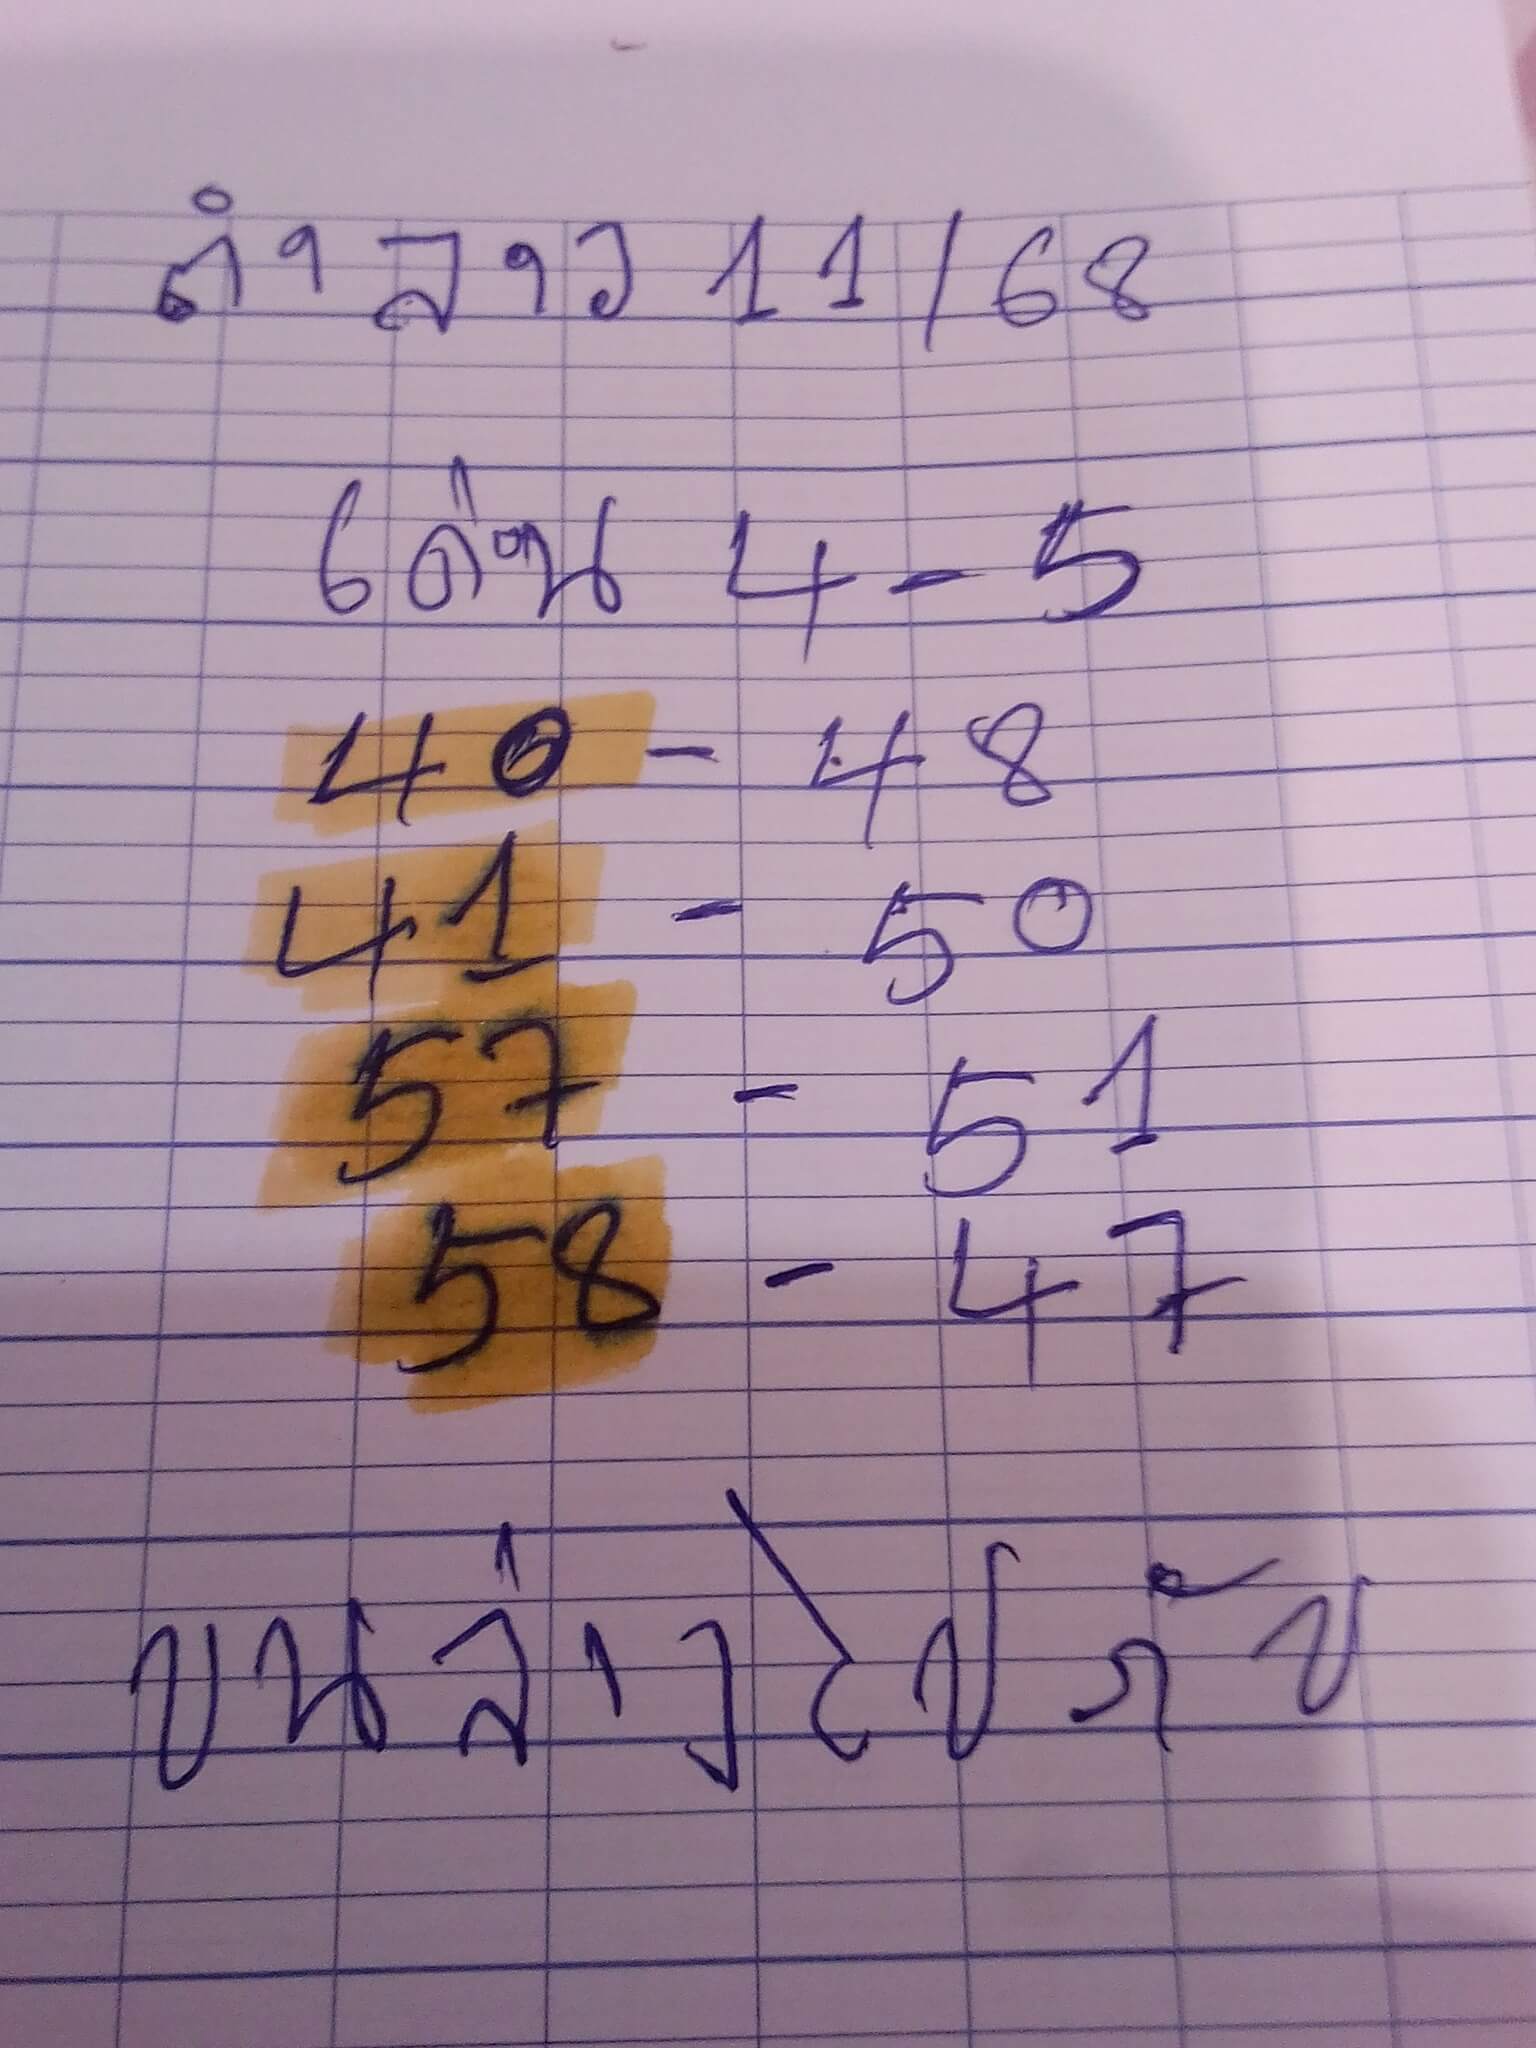 ตำลาว 11/68
เด่น 4-5
40 - 48
41 - 50
57 - 51
58 - 47
บนล่าง